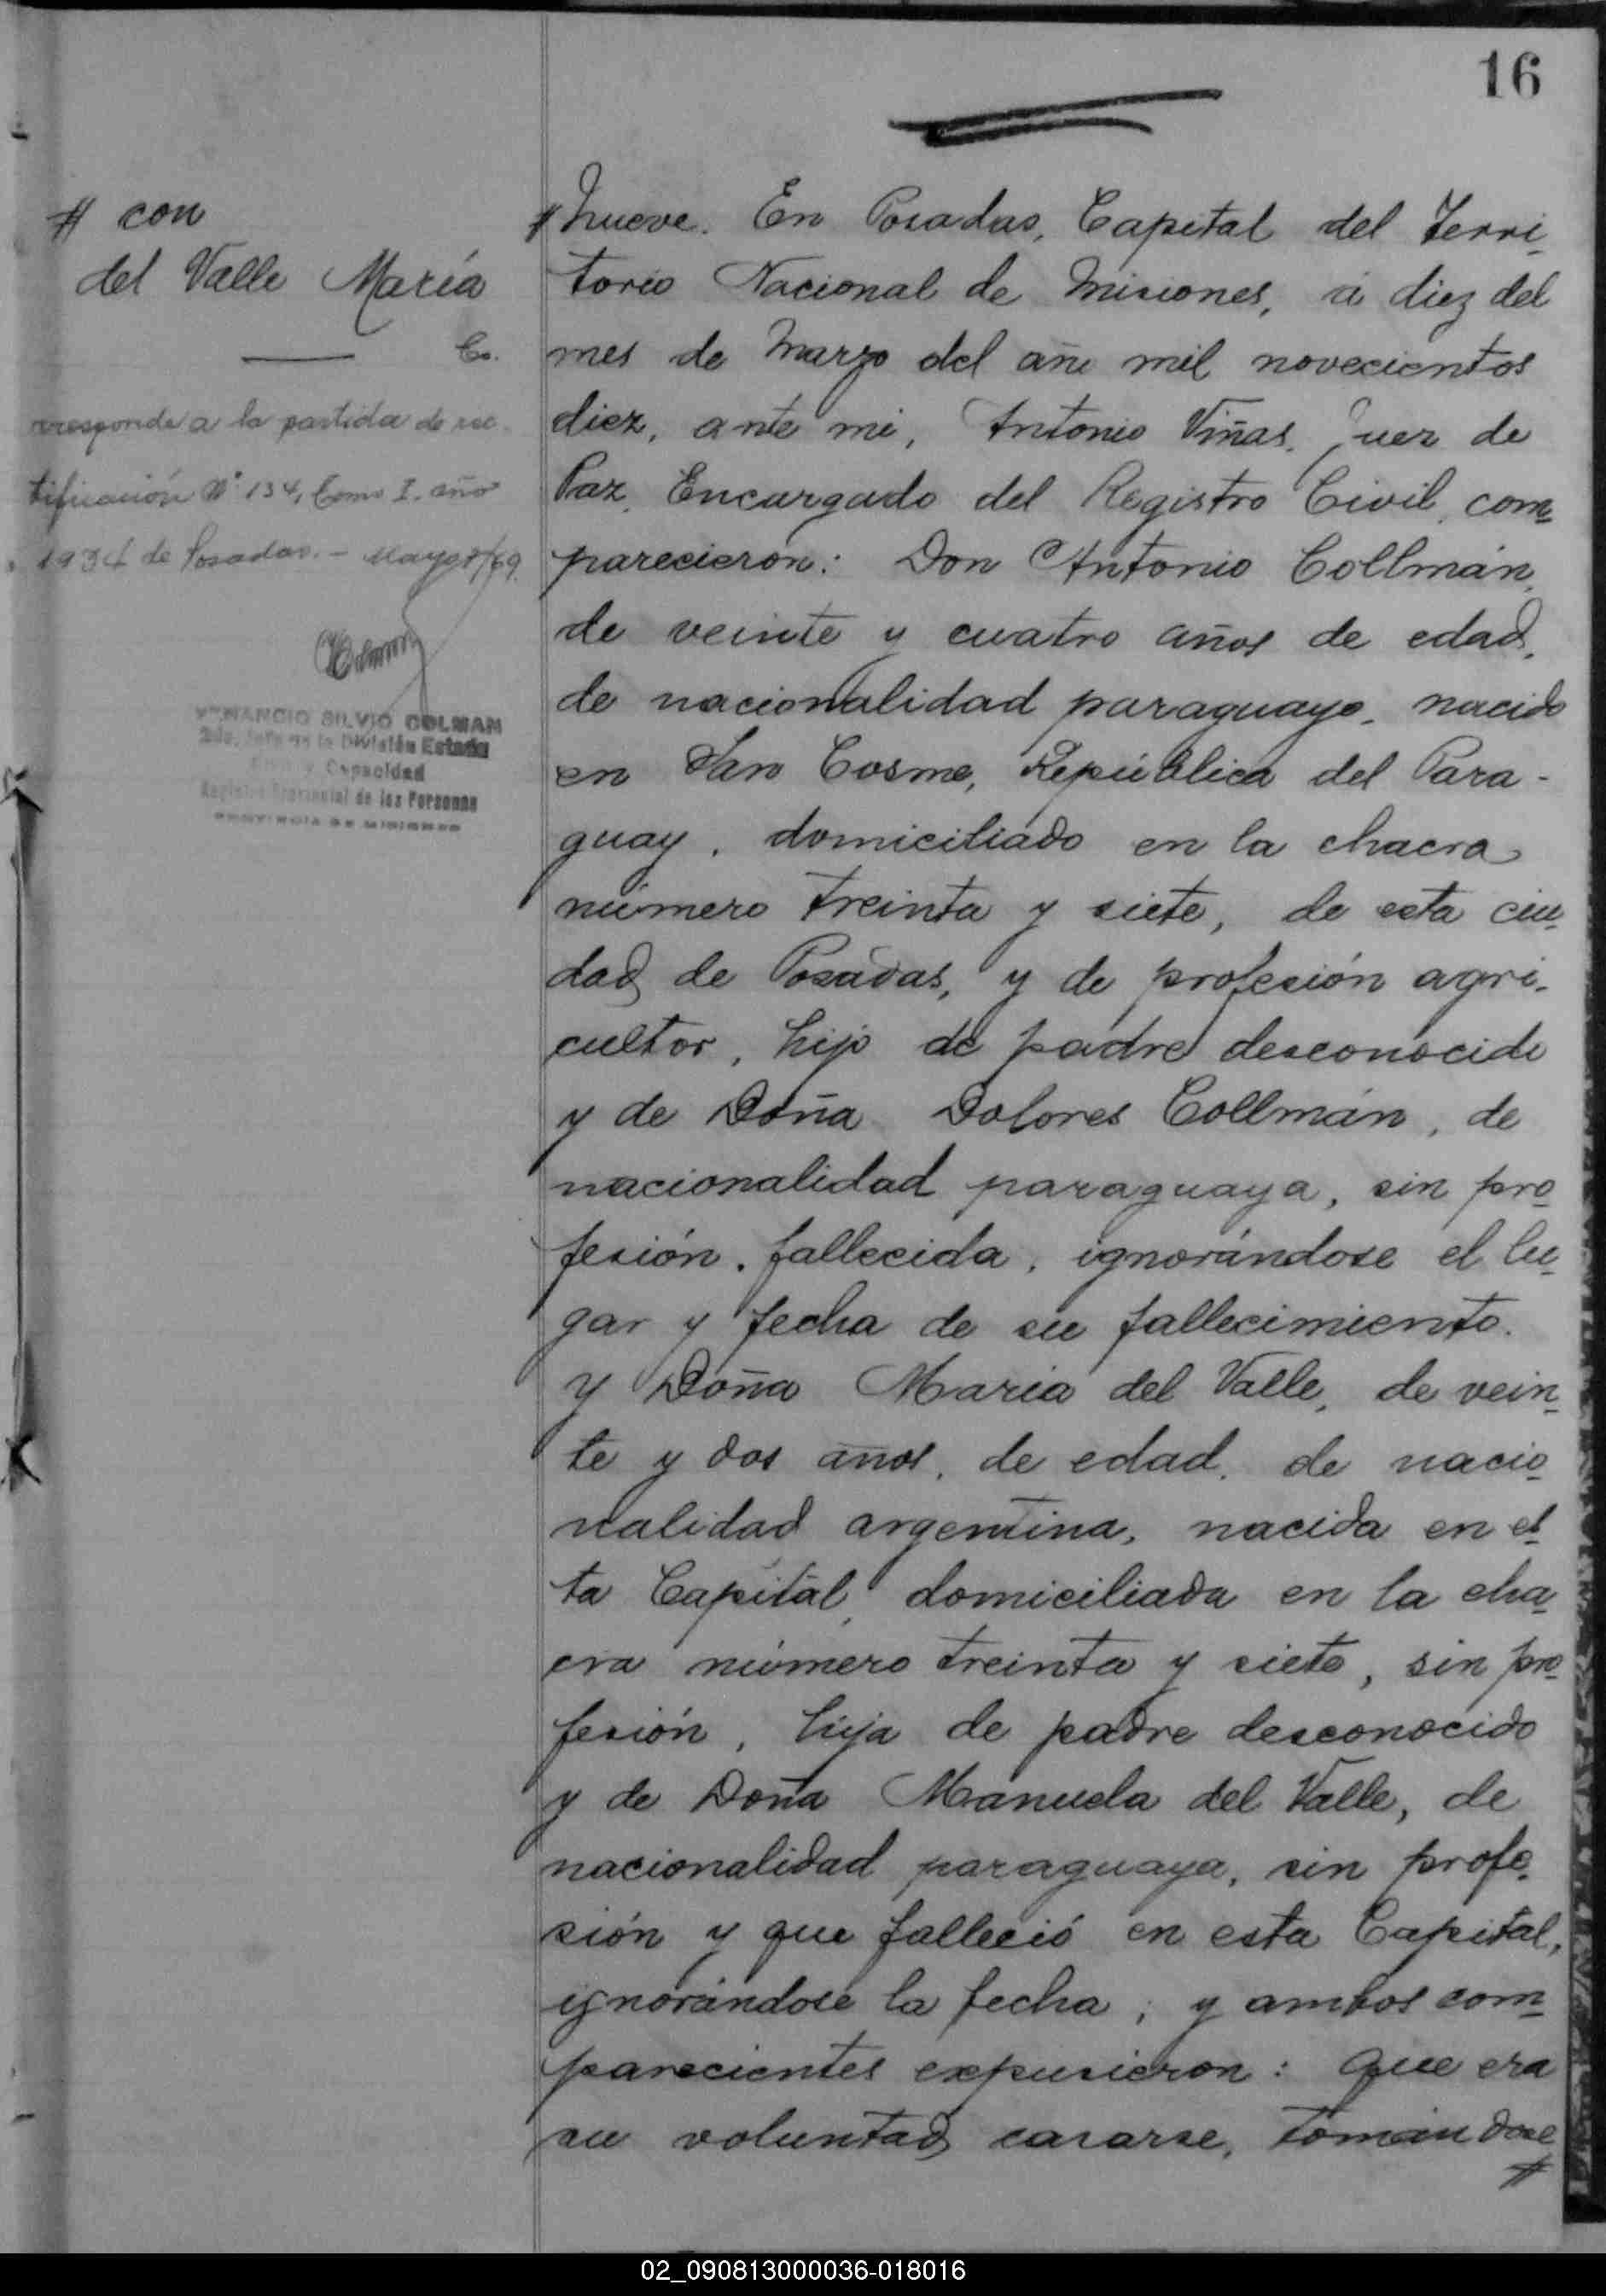 16
# con
del Valle María
Co.
rresponde a la partida de rec-
tificación Nº 134, Tomo I, año
1934 de Posadas.- Mayo 8/69.
VENANCIO SILVIO COLMAN
2do. Jefe de la División Estado
Civil y Capacidad
Registro Provincial de las Personas
PROVINCIA DE MISIONES
# Nueve. En Posadas, Capital del Terri-
torio Nacional de Misiones, á diez del
mes de Marzo del año mil novecientos
diez, ante mi, Antonio Viñas, Juez de
Paz, Encargado del Registro Civil, com-
parecieron: Don Antonio Collmán,
de veinte y cuatro años de edad,
de nacionalidad paraguayo, nacido
en San Cosme, República del Para-
guay, domiciliado en la chacra
número treinta y siete, de esta ciu-
dad de Posadas, y de profesión agri-
cultor, hijo de padre desconocido
y de Doña Dolores Collmán, de
nacionalidad paraguaya, sin pro-
fesión, fallecida, ignorándose el lu-
gar y fecha de su fallecimiento.
Y Doña María del Valle, de vein-
te y dos años, de edad, de nacio-
nalidad argentina, nacida en es-
ta Capital, domiciliada en la cha-
cra número treinta y siete, sin pro-
fesión, hija de padre desconocido
y de Doña Manuela del Valle, de
nacionalidad paraguaya, sin profe-
sión y que falleció en esta Capital,
ignorándose la fecha; y ambos com-
parecientes expusieron: Que era
su voluntad casarse, tomándose
#
02_090813000036-018016